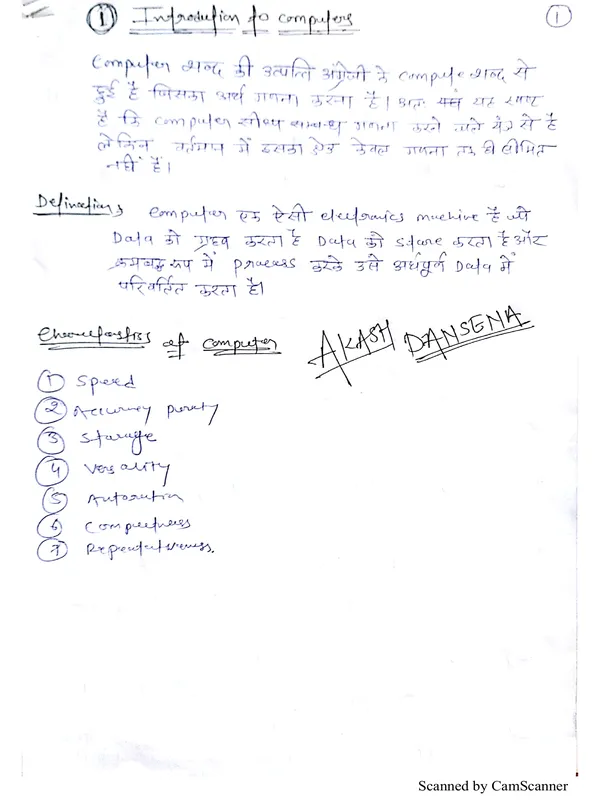 ① Introduction to computers
1
Computer शब्द की उत्पत्ति अंग्रेजी के compute शब्द से
हुई है जिसका अर्थ गणना करना है। अतः यह स्पष्ट
है कि computer सीधा सम्बन्ध गणना करने वाले यंत्र से है
लेकिन वर्तमान में इसका क्षेत्र केवल गणना तक ही सीमित
नहीं है।
Definections computer एक ऐसी electronics machine है जो
Data को ग्रहण करता है Data को store करता है और
क्रमबद्ध रूप में process करके उसे अर्थपूर्ण Data में
परिवर्तित करता है।
of computer
AKASH DANSENA
① Speed
② Accurney purity
③ Storage
④ Versality
⑤
⑥
⑦
Scanned by CamScanner